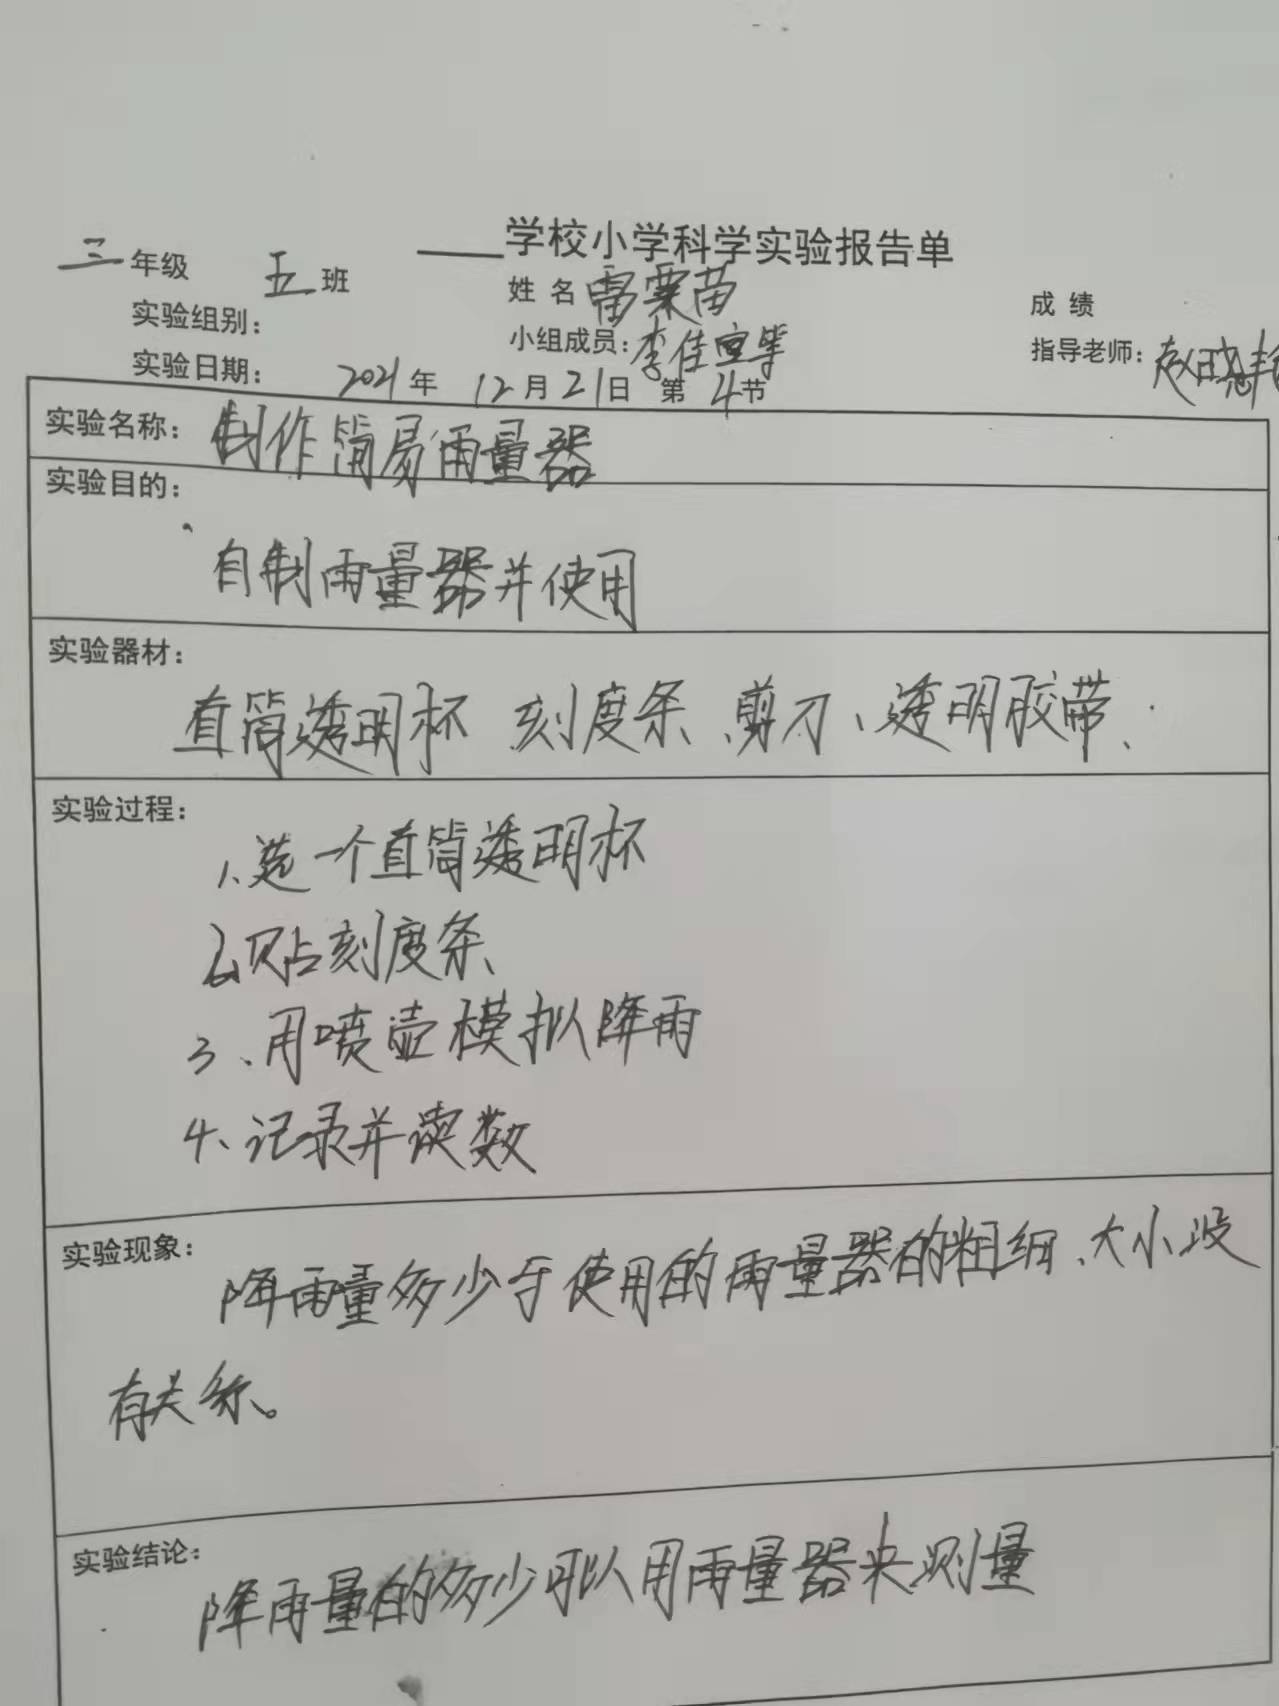 学校小学科学实验报告单
三年级 五班 姓名 雷粟苗 成绩
实验组别： 小组成员：李佳宣等 指导老师：赵晓
实验日期： 2021年 12月21日 第4节
实验名称：制作简易雨量器
实验目的：
自制雨量器并使用
实验器材：
直筒透明杯 刻度条、剪刀、透明胶带、
实验过程：
1、选一个直筒透明杯
2、贴刻度条、
3、用喷壶模拟降雨
4、记录并读数
实验现象：
降雨量多少于使用的雨量器的粗细、大小没
有关系。
实验结论：
降雨量的多少可以用雨量器来测量